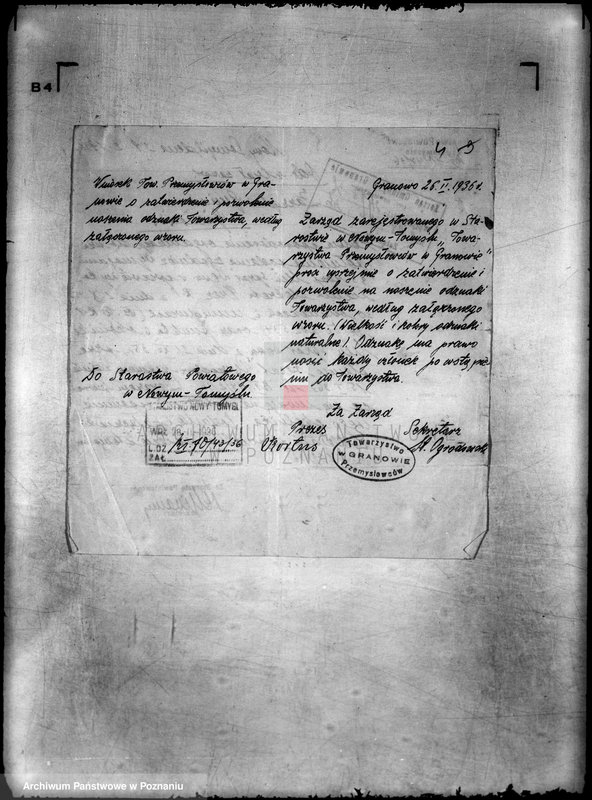 B4
4 5
Wniosek Tow. Przemysłowców w Gra-
nowie o zatwierdzenie i pozwolenie
noszenia odznaki Towarzystwa, według
załączonego wzoru.
Do Starostwa Powiatowego
w Nowym-Tomyślu
Granowo 26.II.1936 r.
Zarząd zarejestrowanego w Sta-
rostwie w Nowym-Tomyślu „Towa-
rzystwa Przemysłowców w Granowie"
prosi uprzejmie o zatwierdzenie i
pozwolenie na noszenie odznaki
Towarzystwa, według załączonego
wzoru. (Wielkość i kolory odznaki
naturalne). Odznakę ma prawo
nosić każdy członek po wstą-
pieniu do Towarzystwa.
Za Zarząd
Prezes
Sekretarz
St. Ogrodowski
NOWY TOMYŚL
L.DZ.
ZAŁ.
Towarzystwo
W GRANOWIE
Przemysłowców
ARCHIWUM PAŃSTWOWE
W POZNANIU
Archiwum Państwowe w Poznaniu